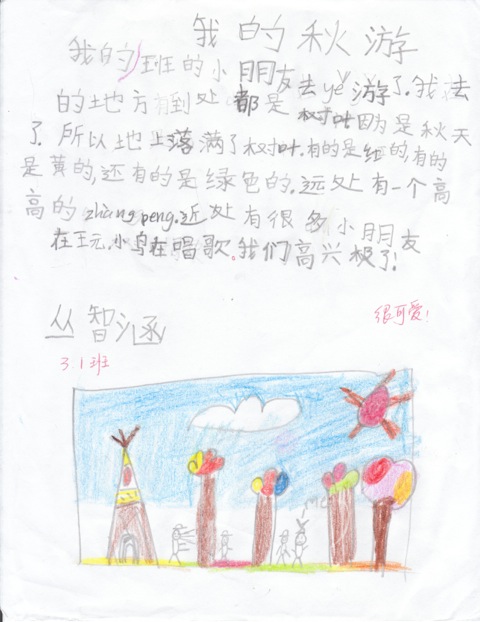 我的秋游
我的班的小朋友去yě游了.我去
的地方有到处都是树叶因是秋天
了.所以地上落满了树叶.有的是红的,有的
是黄的,还有的是绿色的.远处有一个高
高的zhàng peng.近处有很多小朋友
在玩.小鸟在唱歌。我们高兴极了!
很可爱!
丛智涵
3.1班
Me